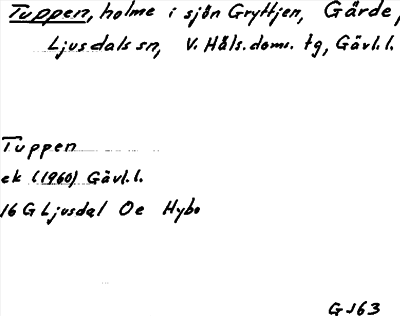 Tuppen, holme i sjön Gryttjen, Gärde,
Ljusdals sn, V. Häls. doms. tg, Gävl.l.
Tuppen
ek (1960) Gävl.l.
16 G Ljusdal Oe Hybo
GJ63